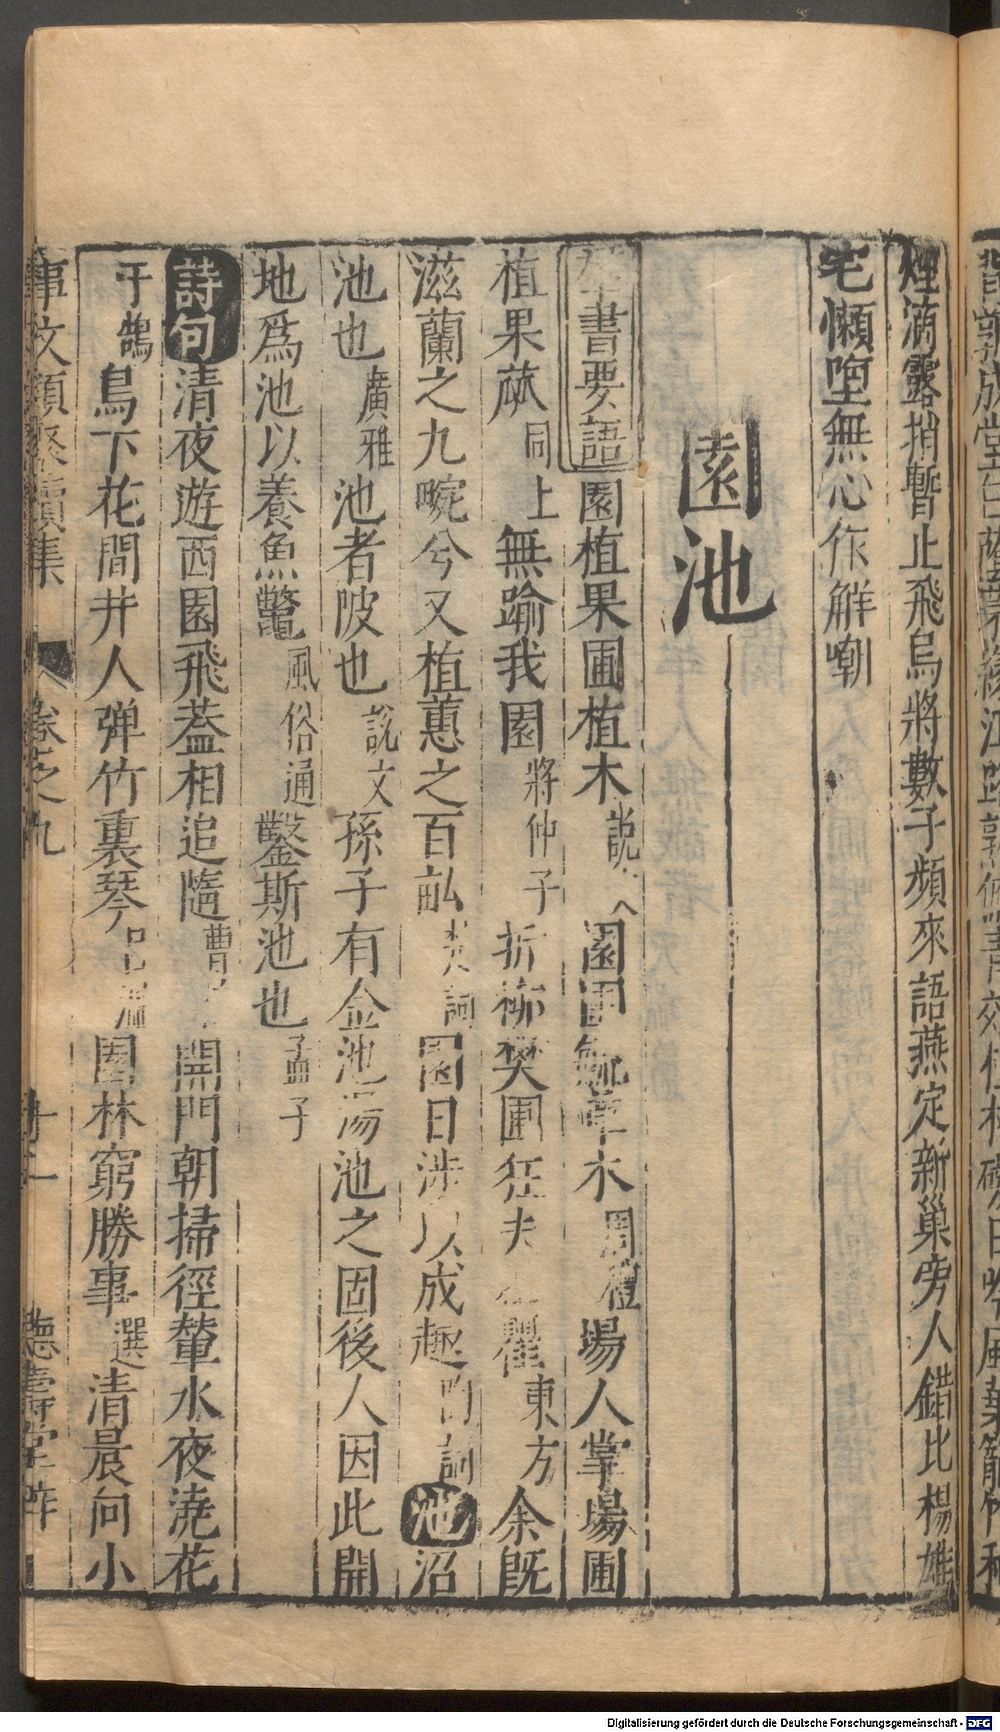 煙滴露捎暫止飛烏將數子頻來語燕定新巢旁人錯比楊雄
宅懶墮無心作解嘲
園池
羣書要語園植果圃植木說文園圃毓草木周禮場人掌場圃
植果蓏同上無踰我園將仲子折柳樊圃狂夫瞿瞿東方余既
滋蘭之九畹兮又植蕙之百畝楚詞園日涉以成趣陶詞池沼
池也廣雅池者陂也說文孫子有金池湯池之固後人因此開
地爲池以養魚鱉風俗通鑿斯池也孟子
詩句清夜遊西園飛蓋相追隨曹開門朝掃徑輦水夜澆花
于鵠鳥下花間井人弹竹裏琴園林窮勝事選清晨向小
事文類聚續集 卷之九 十二 德壽堂梓
Digitalisierung gefördert durch die Deutsche Forschungsgemeinschaft - DFG